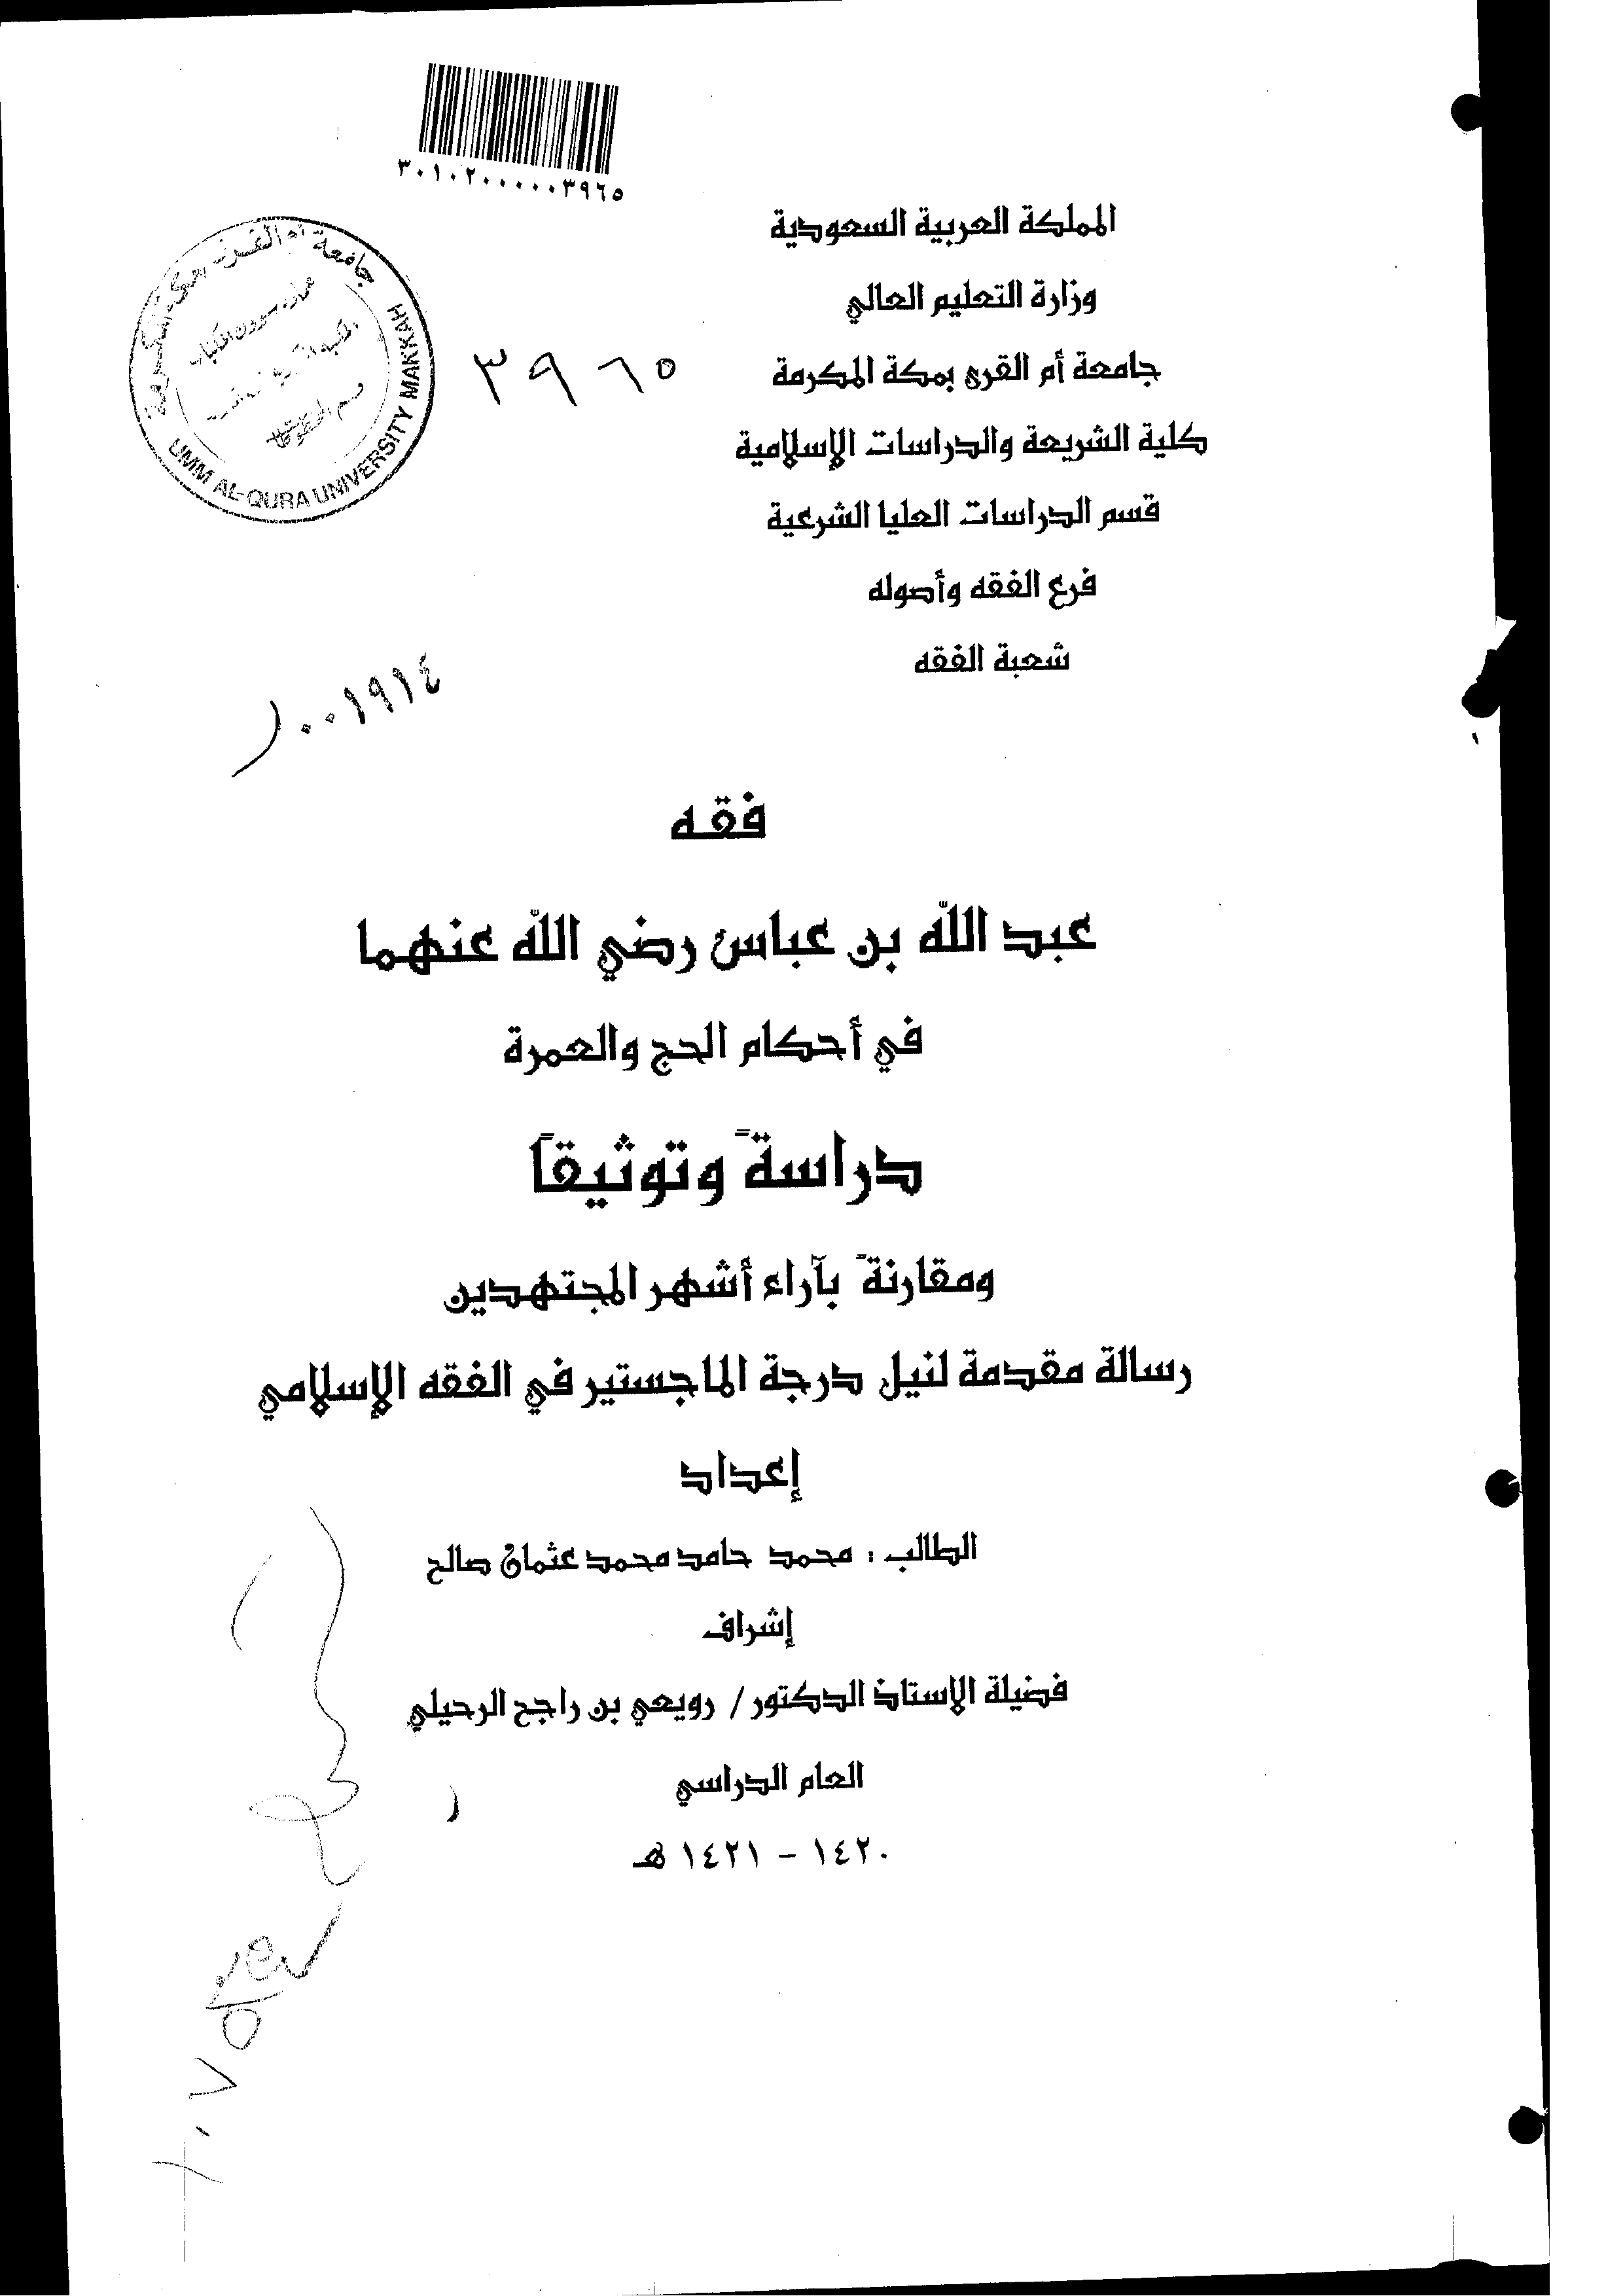 ٣٠١٠٢٠٠٠٠٠٣٩٦٥
المملكة العربية السعودية
وزارة التعليم العالي
جامعة أم القرى بمكة المكرمة
٣٩٦٥
كلية الشريعة والدراسات الإسلامية
قسم الدراسات العليا الشرعية
فرع الفقه وأصوله
شعبة الفقه
جامعة أم القرى
UMM AL-QURA UNIVERSITY MAKKAH
٠٠١٩١٤
فقه
عبد الله بن عباس رضي الله عنهما
في أحكام الحج والعمرة
دراسةً وتوثيقاً
ومقارنةً بآراء أشهر المجتهدين
رسالة مقدمة لنيل درجة الماجستير في الفقه الإسلامي
إعداد
الطالب : محمد حامد محمد عثمان صالح
إشراف
فضيلة الاستاذ الدكتور / رويعي بن راجح الرحيلي
العام الدراسي
١٤٢٠ - ١٤٢١ هـ